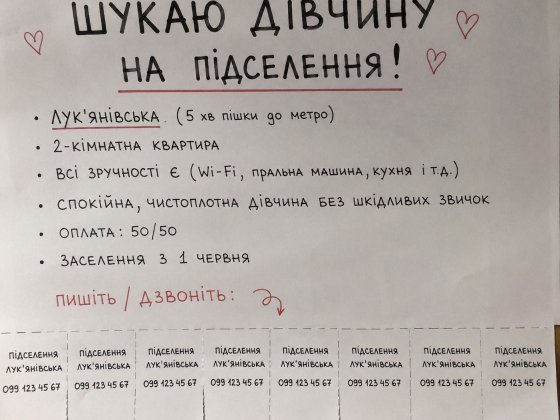 ШУКАЮ ДІВЧИНУ
НА ПІДСЕЛЕННЯ!
• ЛУК'ЯНІВСЬКА. (5 хв пішки до метро)
• 2-КІМНАТНА КВАРТИРА
• ВСІ ЗРУЧНОСТІ Є (Wi-Fi, ПРАЛЬНА МАШИНА, КУХНЯ І Т.Д.)
• СПОКІЙНА, ЧИСТОПЛОТНА ДІВЧИНА БЕЗ ШКІДЛИВИХ ЗВИЧОК
• ОПЛАТА: 50/50
• ЗАСЕЛЕННЯ З 1 ЧЕРВНЯ
ПИШІТЬ / ДЗВОНІТЬ:
ПІДСЕЛЕННЯ
ЛУК'ЯНІВСЬКА
099 123 45 67
ПІДСЕЛЕННЯ
ЛУК'ЯНІВСЬКА
099 123 45 67
ПІДСЕЛЕННЯ
ЛУК'ЯНІВСЬКА
099 123 45 67
ПІДСЕЛЕННЯ
ЛУК'ЯНІВСЬКА
099 123 45 67
ПІДСЕЛЕННЯ
ЛУК'ЯНІВСЬКА
099 123 45 67
ПІДСЕЛЕННЯ
ЛУК'ЯНІВСЬКА
099 123 45 67
ПІДСЕЛЕННЯ
ЛУК'ЯНІВСЬКА
099 123 45 67
ПІДСЕЛЕННЯ
ЛУК'ЯНІВСЬКА
099 123 45 67